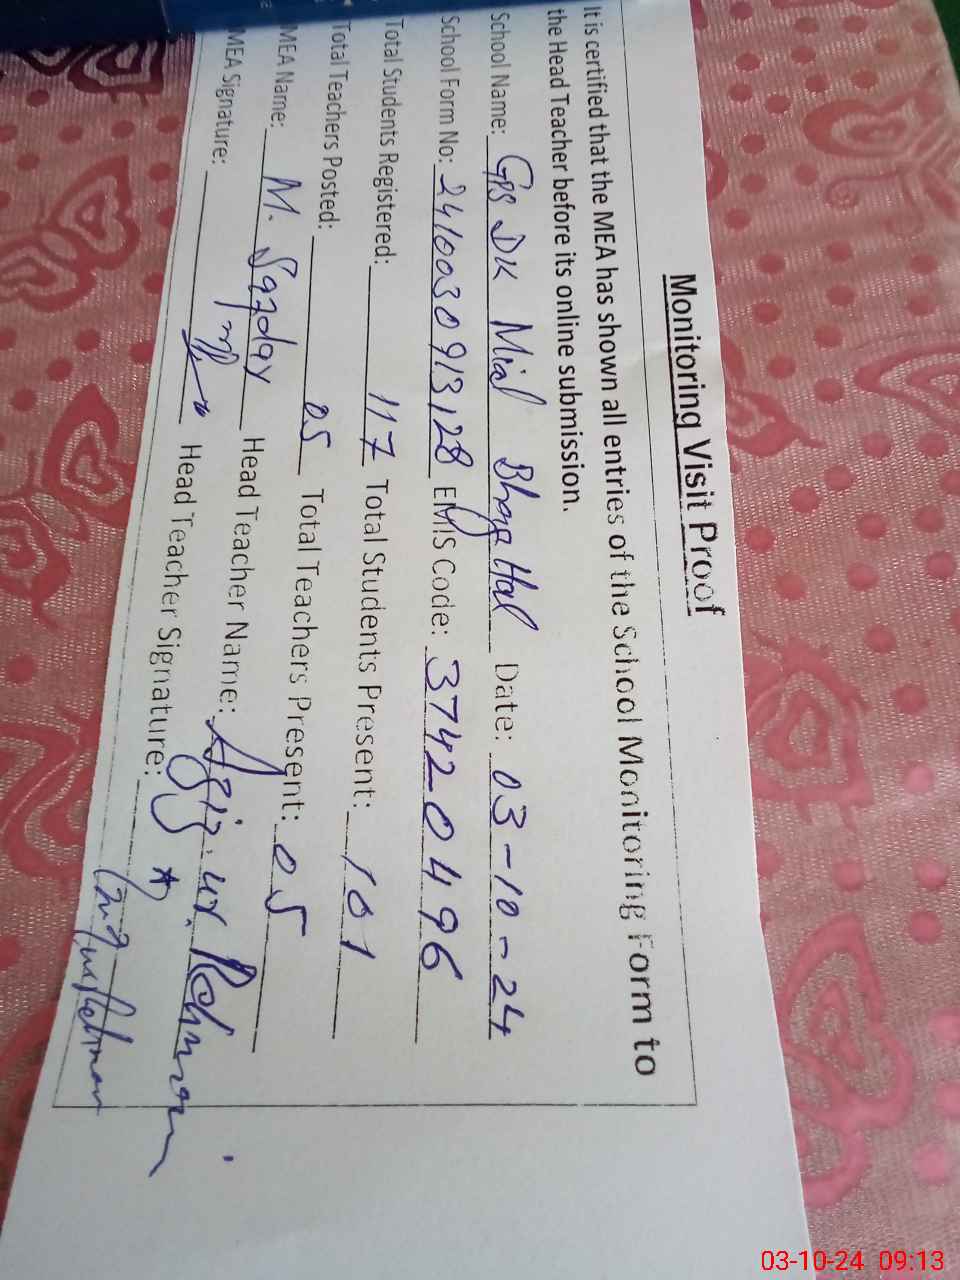 Monitoring Visit Proof
It is certified that the MEA has shown all entries of the School Monitoring Form to
the Head Teacher before its online submission.
School Name: GPS DK Mial Bhaga Hal Date: 03-10-24
School Form No: 2410030913128 EMIS Code: 37420496
Total Students Registered: 117 Total Students Present: 101
Total Teachers Posted: 05 Total Teachers Present: 05
MEA Name: M. Head Teacher Name: Aziz ur Rehman
MEA Signature: Head Teacher Signature:
03-10-24 09:13